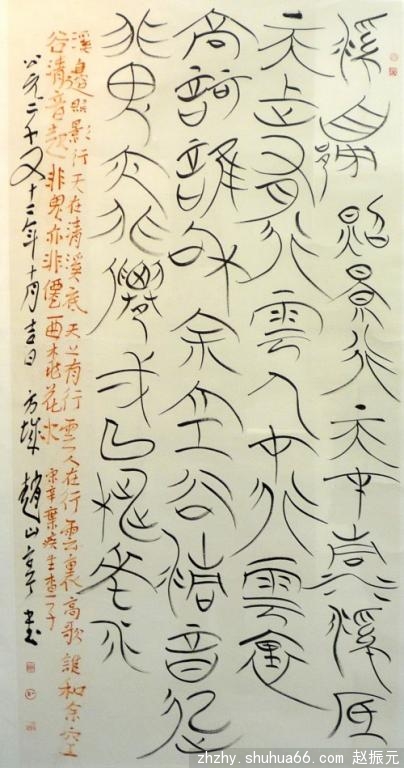 溪邊照景行天在清溪底
天上有行雲人在行雲裏
高謌誰和余空谷清音起
非鬼亦非僊弌曲桃花水
溪邊照影行天在清溪底天上有行雲人在行雲裏高歌誰和余空
谷清音起非鬼亦非僊一曲桃花水 宋辛棄疾生查子
公元二千又十二年十月吉日 方城 趙山亭書
zhzhy.shuhua66.com 赵振元